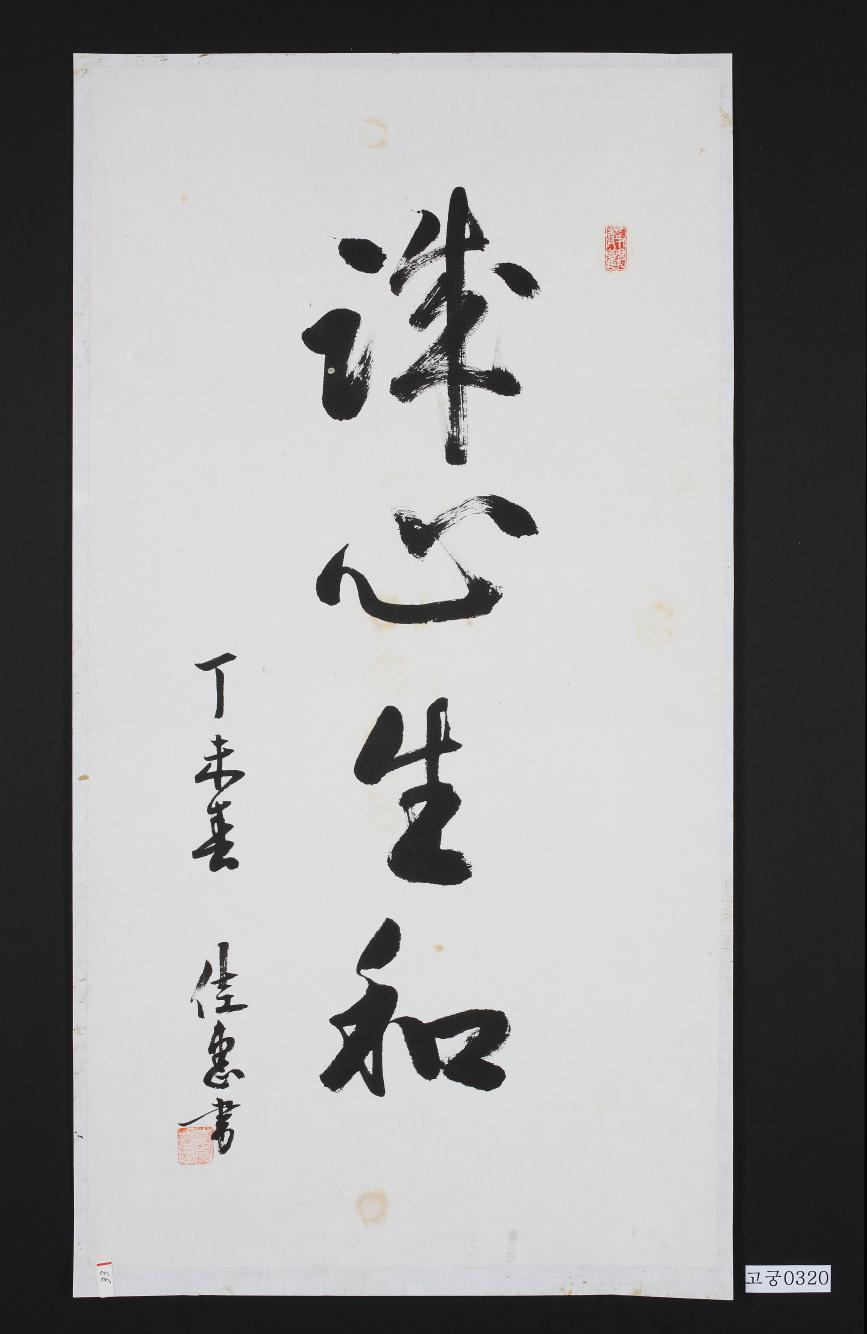 誠心生和
丁未春 佳惠書
33
고궁0320